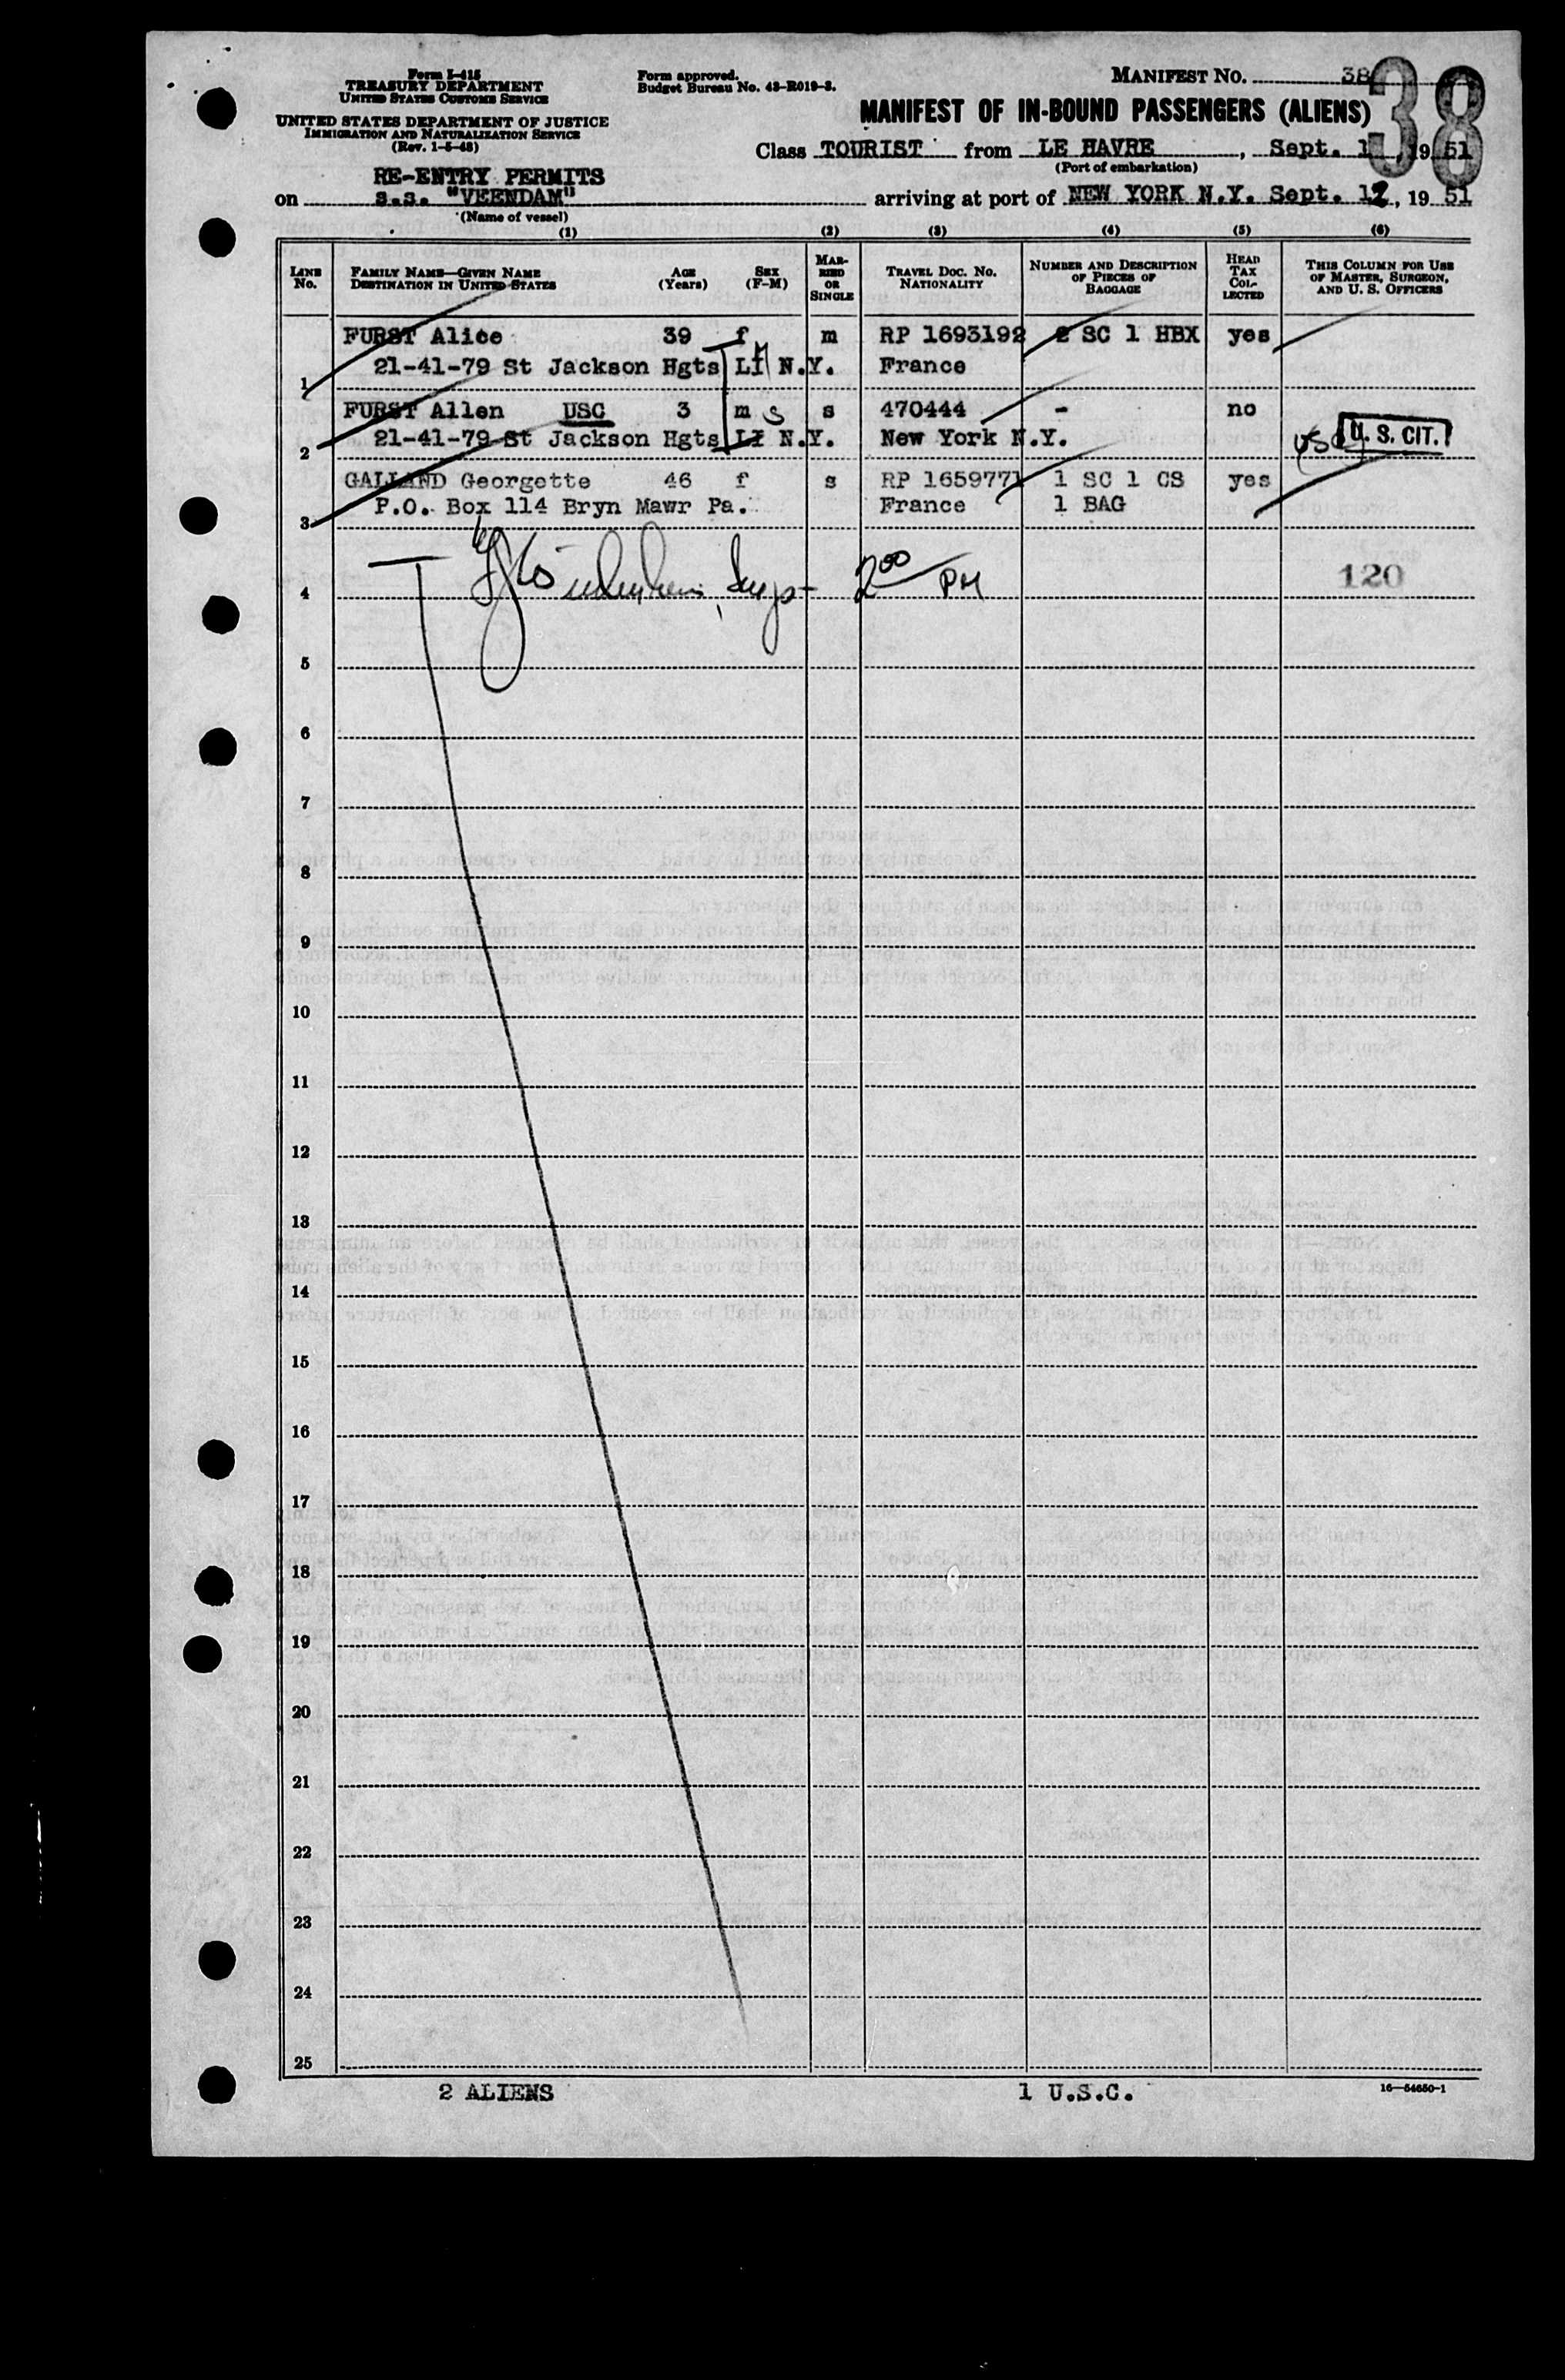 Form I-415
TREASURY DEPARTMENT
UNITED STATES CUSTOMS SERVICE
UNITED STATES DEPARTMENT OF JUSTICE
IMMIGRATION AND NATURALIZATION SERVICE
(Rev. 1-5-48)
Form approved.
Budget Bureau No. 43-R019-3.
MANIFEST No. 38
38
MANIFEST OF IN-BOUND PASSENGERS (ALIENS)
Class TOURIST from LE HAVRE, Sept. 1, 1951
(Port of embarkation)
RE-ENTRY PERMITS
on s.s. "VEENDAM" arriving at port of NEW YORK N.Y. Sept. 12, 1951
(Name of vessel)
(1) (2) (3) (4) (5) (6)
LINE No. FAMILY NAME—GIVEN NAME DESTINATION IN UNITED STATES AGE (Years) SEX (F-M) MARRIED OR SINGLE TRAVEL DOC. NO. NATIONALITY NUMBER AND DESCRIPTION OF PIECES OF BAGGAGE HEAD TAX COLLECTED THIS COLUMN FOR USE OF MASTER, SURGEON, AND U. S. OFFICERS
FURST Alice 39 f m RP 1693192 2 SC 1 HBX yes
1 21-41-79 St Jackson Hgts LI N.Y. France
FURST Allen USC 3 m s s 470444 - no
2 21-41-79 St Jackson Hgts LI N.Y. New York N.Y. USC U. S. CIT.
GALLAND Georgette 46 f s RP 1659771 1 SC 1 CS yes
3 P.O. Box 114 Bryn Mawr Pa. France 1 BAG
4 2 00 PM 120
5
6
7
8
9
10
11
12
13
14
15
16
17
18
19
20
21
22
23
24
25
2 ALIENS 1 U.S.C. 16—54650-1